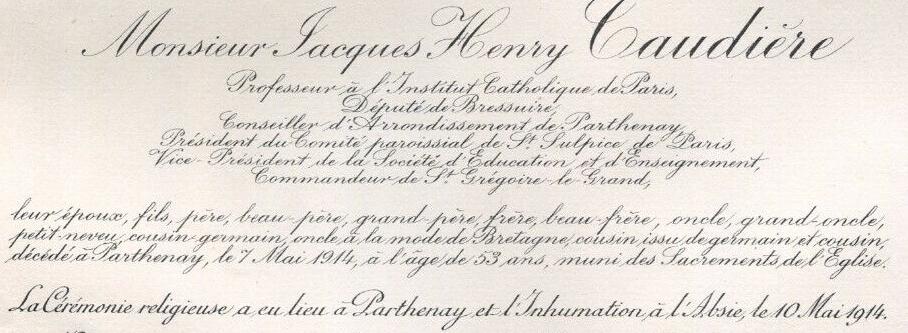 Monsieur Jacques Henry Taudière
Professeur à l'Institut Catholique de Paris,
Député de Bressuire,
Conseiller d'Arrondissement de Parthenay,
Président du Comité paroissial de St Sulpice de Paris,
Vice-Président de la Société d'Education et d'Enseignement,
Commandeur de St Grégoire-le-Grand,
leur époux, fils, père, beau-père, grand-père, frère, beau-frère, oncle, grand-oncle,
petit-neveu, cousin-germain, oncle à la mode de Bretagne, cousin issu de germain et cousin,
décédé à Parthenay, le 7 Mai 1914, à l'âge de 53 ans, muni des Sacrements de l'Eglise.
La Cérémonie religieuse a eu lieu à Parthenay et l'Inhumation à l'Absie, le 10 Mai 1914.